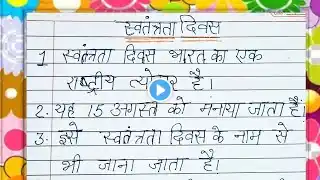 स्वतंत्रता दिवस
1 स्वतंत्रता दिवस भारत का एक
राष्ट्रीय त्योहार है।
2. यह 15 अगस्त को मनाया जाता है।
3. इसे स्वतंत्रता दिवस के नाम से
भी जाना जाता है।